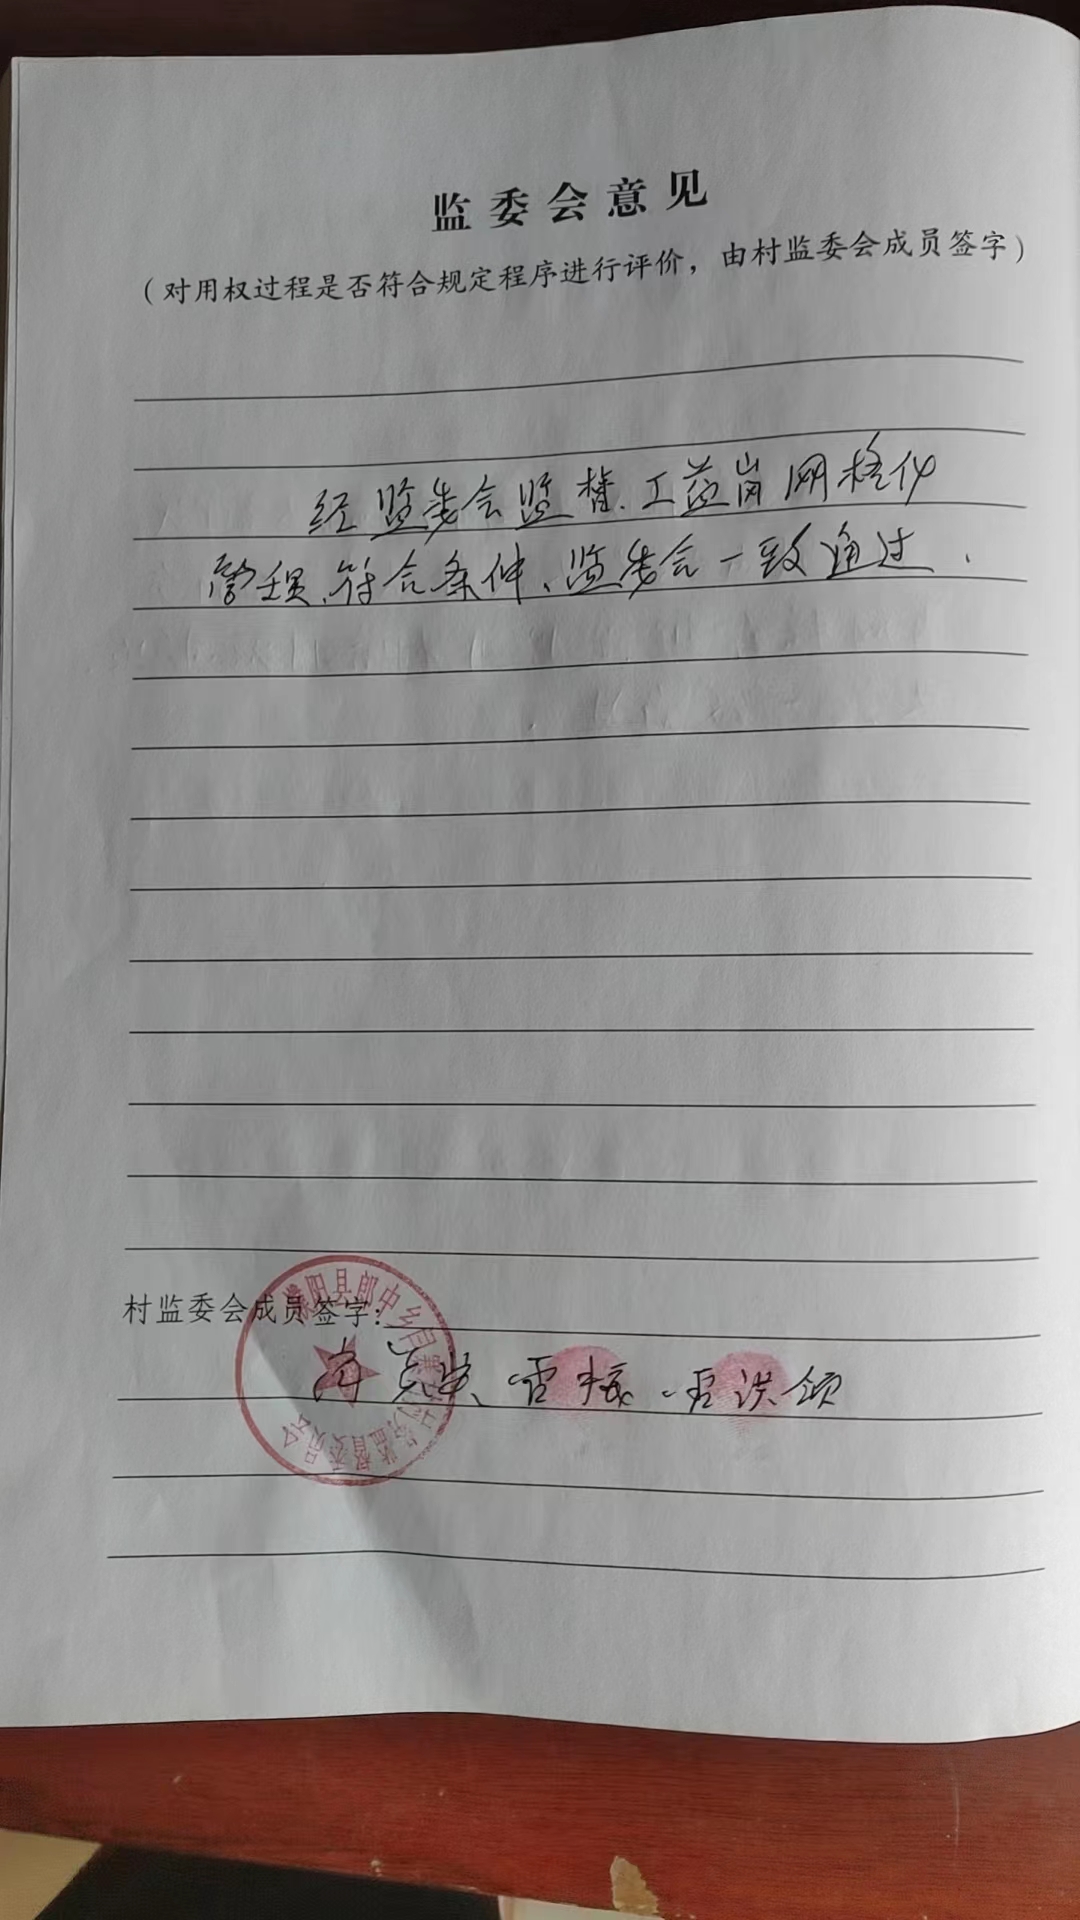 监委会意见
（对用权过程是否符合规定程序进行评价，由村监委会成员签字）
经监委会监督.工益岗网格化
管理、符合条件、监委会一致通过.
村监委会成员签字：
濮阳县郎中乡 村务监督委员会
雷振 雷洪领